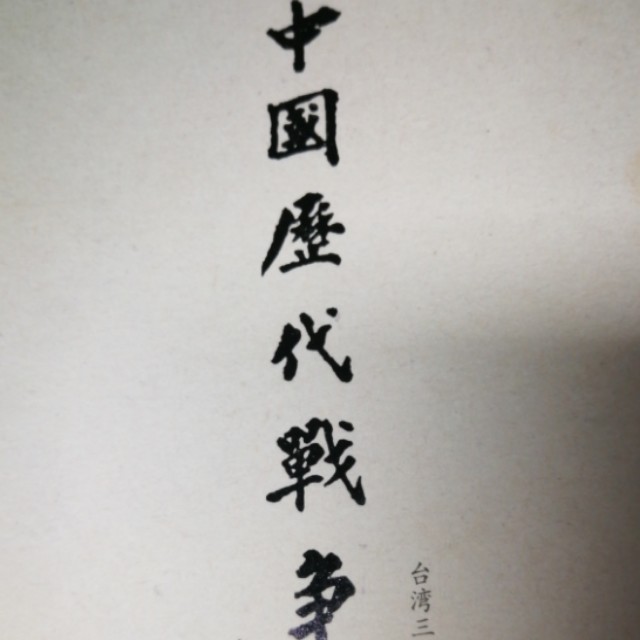 中國歷代戰争
台湾三